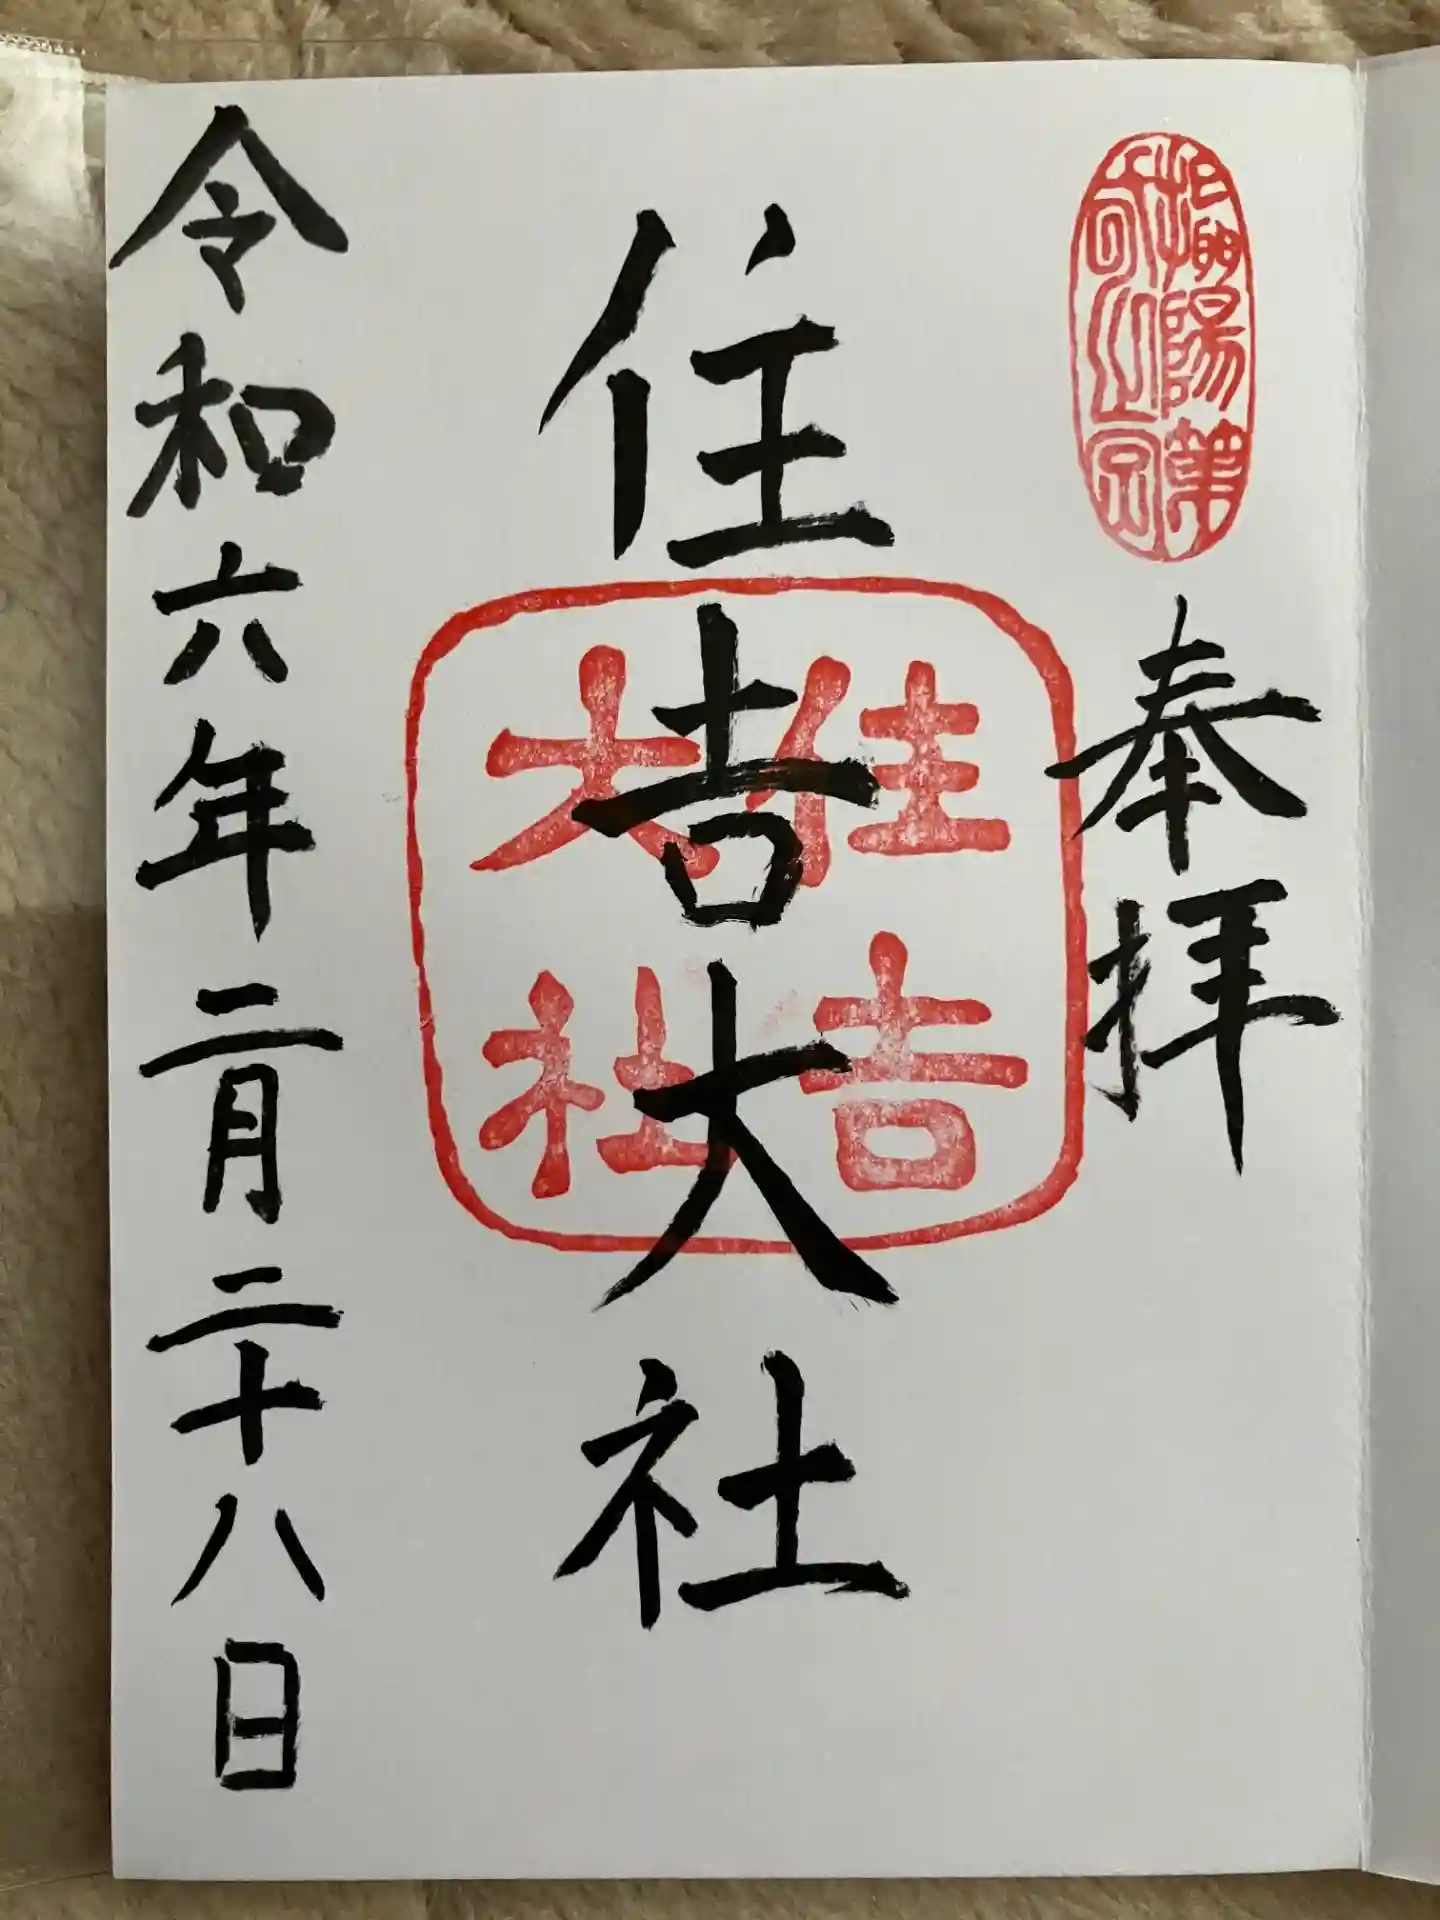 攝陽第
奉拝
住吉大社
住吉
大社
令和六年二月二十八日